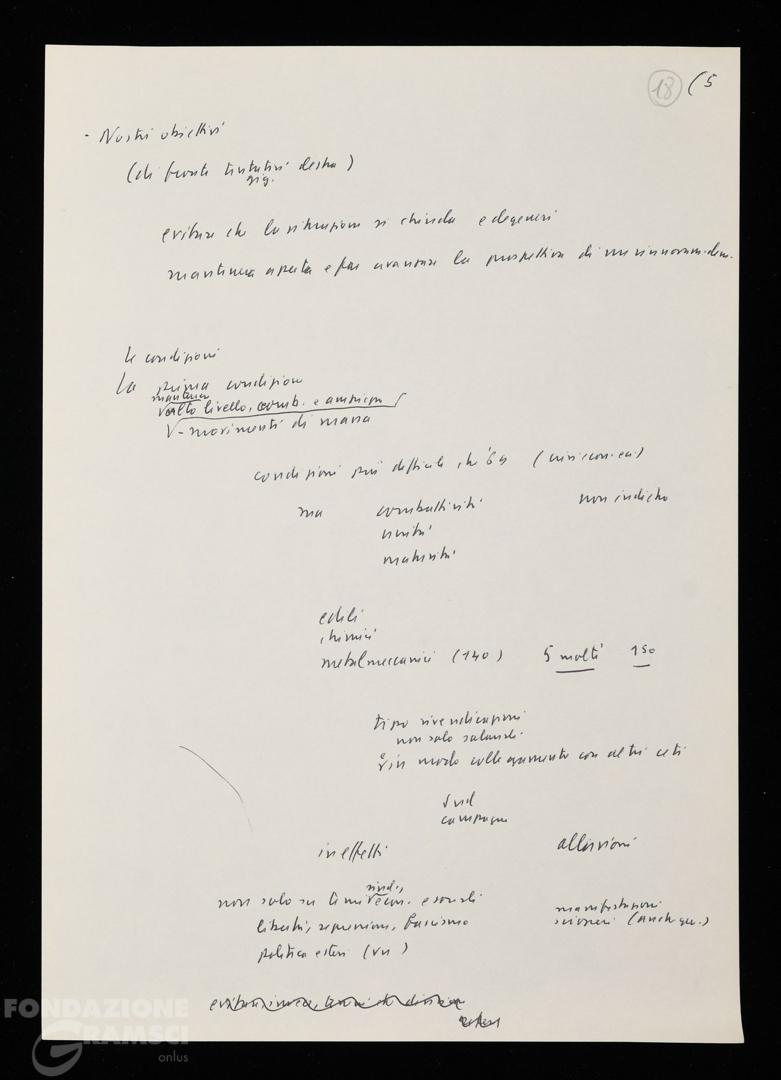 18 (5
- Nostri obiettivi
(di fronte tentativi destra)
evitare che la situazione si chiuda e degeneri
mantenere aperta e far avanzare la prospettiva di un rinnovam. dem.
le condizioni
La prima condizione
mantenere
alto livello, comb. e ampiezza
- movimenti di massa
condizioni più difficili che '69 (crisi econ.
ma combattività non indietro
unità
maturità
edili
chimici
metalmeccanici (140) 5 molti 150
tipo rivendicazioni
non solo salariali
e in modo collegamento con altri ceti
Sud
campagne
in effetti alluvioni
non solo su temi sind., econ. e sociali manifestazioni
libertà, repressione, fascismo scioperi (anche
politica estera (VN)
FONDAZIONE
GRAMSCI
onlus